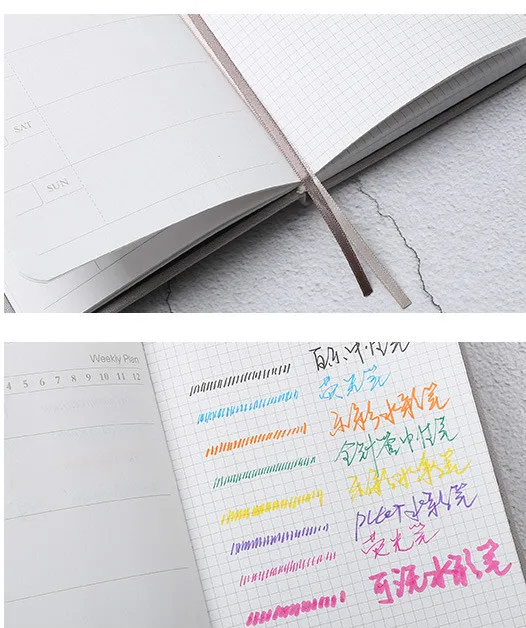 SAT
SUN
Weekly Plan
4 5 6 7 8 9 10 11 12
百乐中性笔
荧光笔
水彩笔
全针管中性笔
水彩笔
水彩笔
荧光笔
可洗水彩笔